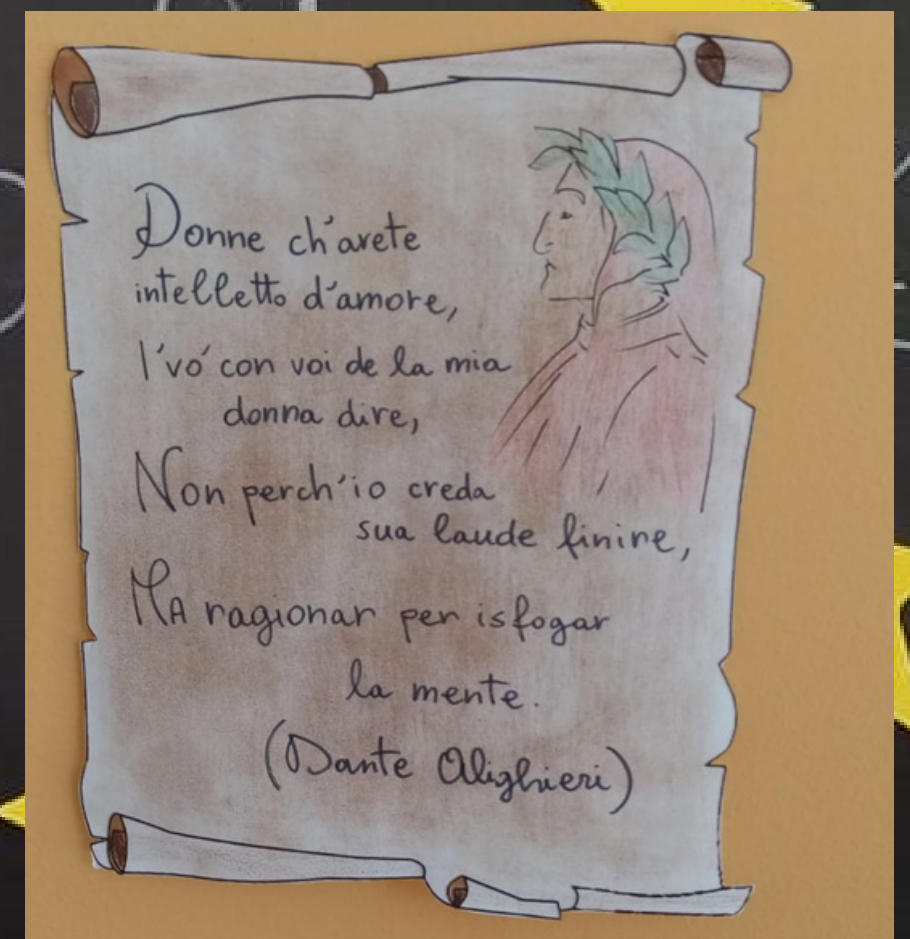 Donne ch'avete
intelletto d'amore,
I'vo' con voi de la mia
donna dire,
Non perch'io creda
sua laude finire,
MA ragionar per isfogar
la mente.
(Dante Alighieri)